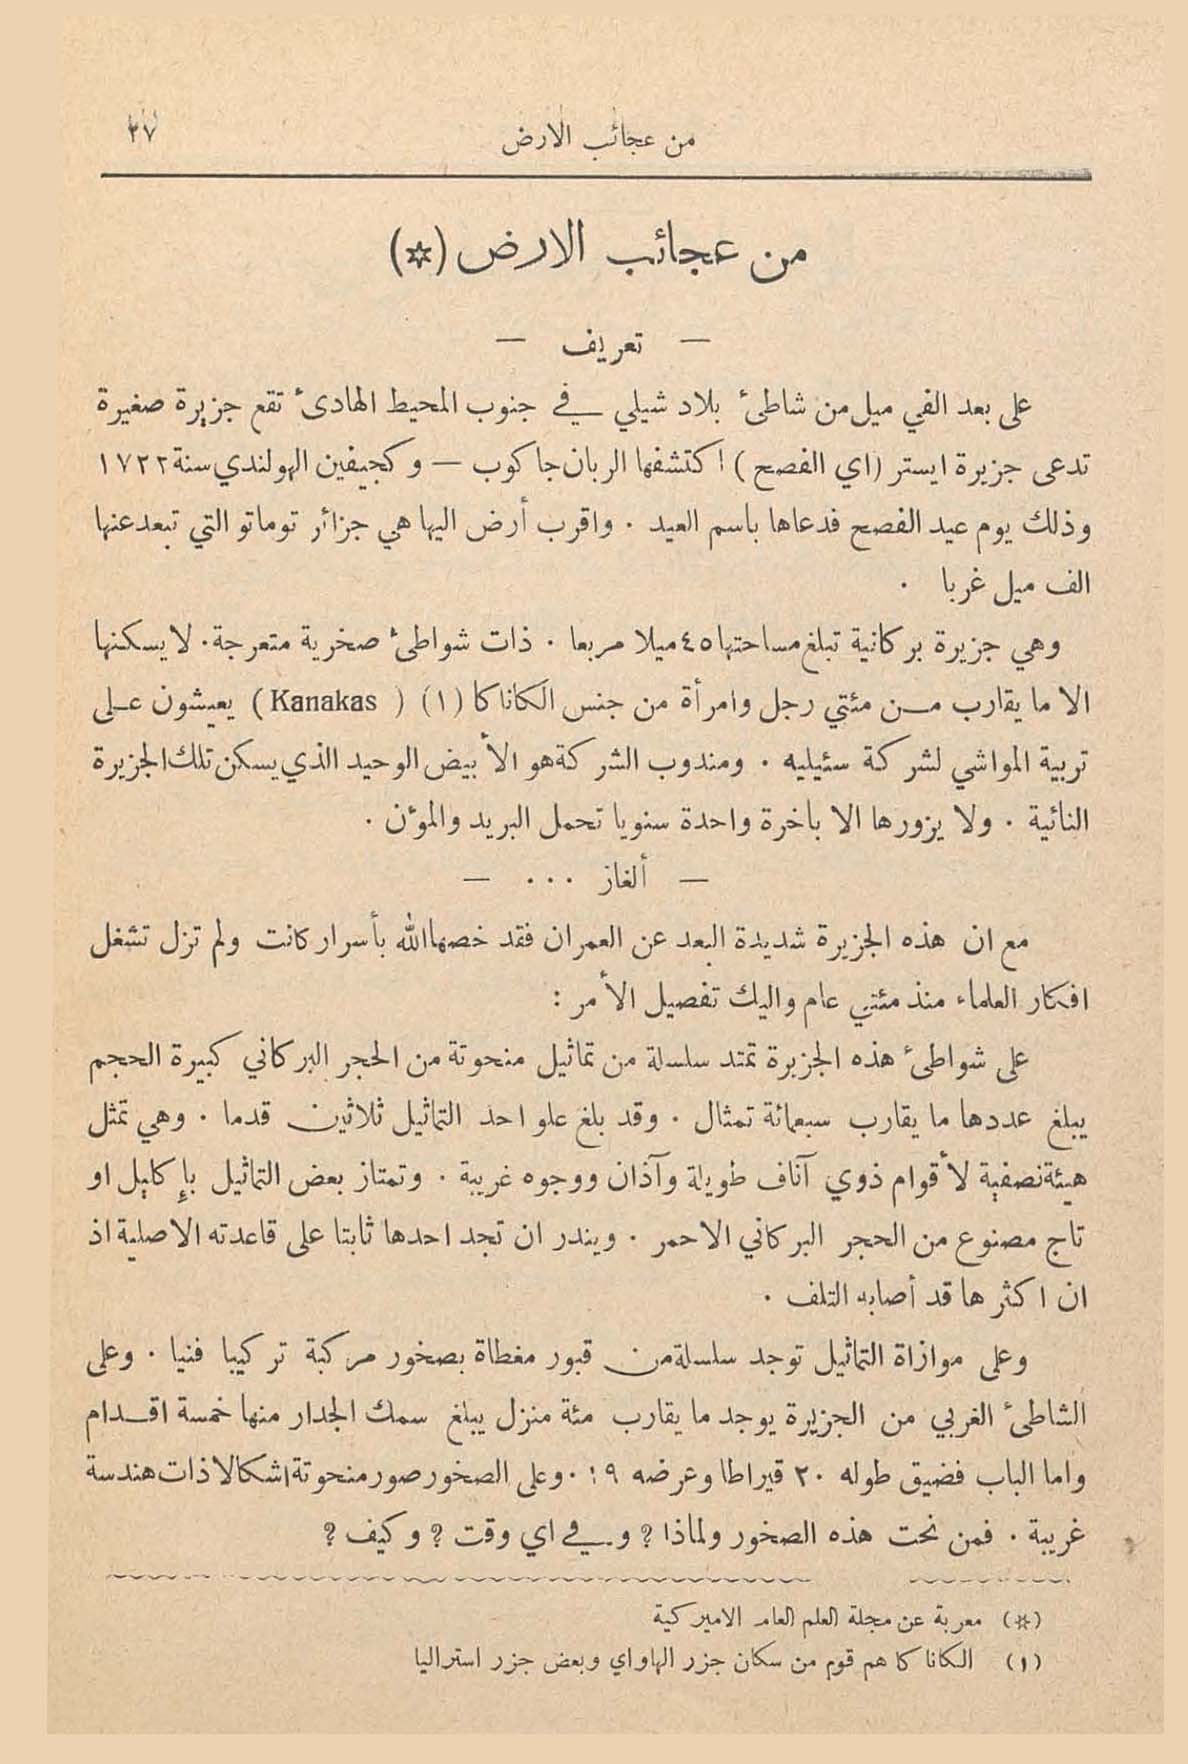 من عجائب الارض ٢٧
من عجائب الارض (☆)
— تعريف —
على بعد الفي ميل من شاطئ بلاد شيلي في جنوب المحيط الهادئ تقع جزيرة صغيرة
تدعى جزيرة ايستر (اي الفصح) اكتشفها الربان جاكوب — وكجيفين الهولندي سنة ١٧٢٢
وذلك يوم عيد الفصح فدعاها باسم العيد . واقرب أرض اليها هي جزائر توماتو التي تبعد عنها
الف ميل غربا .
وهي جزيرة بركانية تبلغ مساحتها ٤٥ ميلا مربعا . ذات شواطئ صخرية متعرجة . لا يسكنها
الا ما يقارب مـن مئتي رجل وامرأة من جنس الكاناكا (١) ( Kanakas ) يعيشون عـلى
تربية المواشي لشركة سئيليه . ومندوب الشركة هو الأبيض الوحيد الذي يسكن تلك الجزيرة
النائية . ولا يزورها الا باخرة واحدة سنويا تحمل البريد والمؤن .
— ألغاز ... —
مع ان هذه الجزيرة شديدة البعد عن العمران فقد خصها الله بأسرار كانت ولم تزل تشغل
افكار العلماء منذ مئتي عام واليك تفصيل الأمر :
على شواطئ هذه الجزيرة تمتد سلسلة من تماثيل منحوتة من الحجر البركاني كبيرة الحجم
يبلغ عددها ما يقارب سبعمائة تمثال . وقد بلغ علو احد التماثيل ثلاثين قدما . وهي تمثل
هيئة نصفية لأقوام ذوي آناف طويلة وآذان ووجوه غريبة . وتمتاز بعض التماثيل بإكليل او
تاج مصنوع من الحجر البركاني الاحمر . ويندر ان تجد احدها ثابتا على قاعدته الاصلية اذ
ان اكثرها قد أصابه التلف .
وعلى موازاة التماثيل توجد سلسلة من قبور مغطاة بصخور مركبة تركيبا فنيا . وعلى
الشاطئ الغربي من الجزيرة يوجد ما يقارب مئة منزل يبلغ سمك الجدار منها خمسة اقـدام
واما الباب فضيق طوله ٢٠ قيراطا وعرضه ١٩ . وعلى الصخور صور منحوتة اشكالا ذات هندسة
غريبة . فمن نحت هذه الصخور ولماذا ؟ وفي اي وقت ؟ وكيف ؟
(☆) معربة عن مجلة العلم العام الاميركية
(١) الكاناكا هم قوم من سكان جزر الهاواي وبعض جزر استراليا